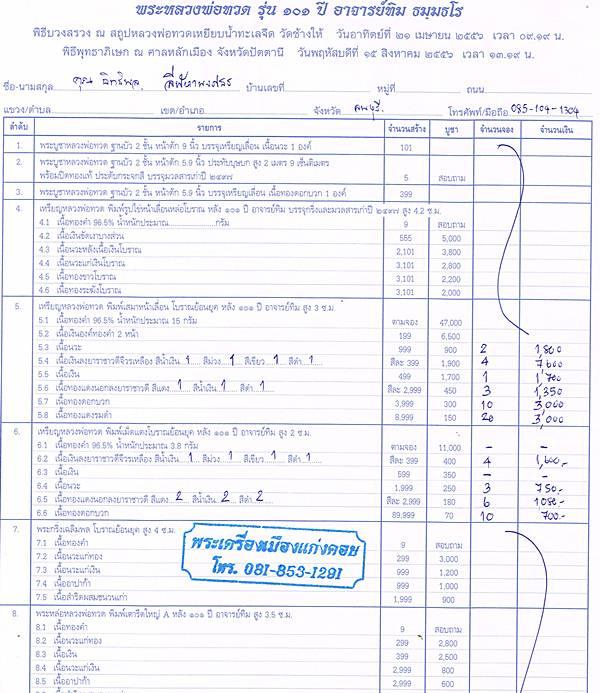 พระหลวงพ่อทวด รุ่น ๑๐๑ ปี อาจารย์ทิม ธมฺมธโร
พิธีบวงสรวง ณ สถูปหลวงพ่อทวดเหยียบน้ำทะเลจืด วัดช้างให้ วันอาทิตย์ที่ ๒๑ เมษายน ๒๕๕๖ เวลา ๐๙.๑๙ น.
พิธีพุทธาภิเษก ณ ศาลหลักเมือง จังหวัดปัตตานี วันพฤหัสบดีที่ ๑๕ สิงหาคม ๒๕๕๖ เวลา ๑๓.๑๙ น.
ชื่อ-นามสกุล คุณ บ้านเลขที่ หมู่ที่ ถนน
แขวง/ตำบล เขต/อำเภอ จังหวัด ลพบุรี โทรศัพท์/มือถือ 085-104-1304
ลำดับ รายการ จำนวนสร้าง บูชา จำนวนจอง จำนวนเงิน
1. พระบูชาหลวงพ่อทวด ฐานบัว 2 ชั้น หน้าตัก 9 นิ้ว บรรจุเหรียญเลื่อน เนื้อนวะ 1 องค์ 101
2. พระบูชาหลวงพ่อทวด ฐานบัว 2 ชั้น หน้าตัก 5.9 นิ้ว ประทับบุษบก สูง 2 เมตร 9 เซ็นติเมตร
พร้อมปิดทองแท้ ประดับกระจกสี บรรจุมวลสารเก่าปี ๒๔๙๗ 5 สอบถาม
3. พระบูชาหลวงพ่อทวด ฐานบัว 2 ชั้น หน้าตัก 5.9 นิ้ว บรรจุเหรียญเลื่อน เนื้อทองดอกบวก 1 องค์ 399
4. เหรียญหลวงพ่อทวด พิมพ์รูปไข่หน้าเลื่อนหล่อโบราณ หลัง ๑๐๑ ปี อาจารย์ทิม บรรจุกริ่งและมวลสารเก่าปี ๒๔๙๗ สูง 4.2 ซ.ม.
4.1 เนื้อทองคำ 96.5% น้ำหนักประมาณ....................กรัม 9 สอบถาม
4.2 เนื้อเงินขัดเงาบางส่วน 555 5,000
4.3 เนื้อนวะหลังเนื้อเงินโบราณ 2,101 3,800
4.4 เนื้อนวะแก่เงินโบราณ 3,101 2,800
4.5 เนื้อทองขาวโบราณ 3,101 2,200
4.6 เนื้อทองระฆังโบราณ 3,101 2,000
5. เหรียญหลวงพ่อทวด พิมพ์เสมาหน้าเลื่อน โบราณย้อนยุค หลัง ๑๐๑ ปี อาจารย์ทิม สูง 3 ซ.ม.
5.1 เนื้อทองคำ 96.5% น้ำหนักประมาณ 15 กรัม ตามจอง 47,000
5.2 เนื้อเงินองค์ทองคำ 2 หน้า 199 6,500
5.3 เนื้อนวะ 999 900 2 1,800
5.4 เนื้อเงินลงยาราชาวดีจีวรเหลือง สีน้ำเงิน 1 สีม่วง 1 สีเขียว 1 สีดำ 1 สีละ 399 1,900 4 7600
5.5 เนื้อเงิน 499 1,700 1 1,700
5.6 เนื้อทองแดงนอกลงยาราชาวดี สีแดง 1 สีน้ำเงิน 1 สีดำ 1 สีละ 2,999 450 3 1,350
5.7 เนื้อทองดอกบวก 3,999 300 10 3,000
5.8 เนื้อทองแดงรมดำ 8,999 150 20 3,000
6. เหรียญหลวงพ่อทวด พิมพ์เม็ดแตงโบราณย้อนยุค หลัง ๑๐๑ ปี อาจารย์ทิม สูง 2 ซ.ม.
6.1 เนื้อทองคำ 96.5% น้ำหนักประมาณ 3.8 กรัม ตามจอง 11,000 - -
6.2 เนื้อเงินลงยาราชาวดีจีวรเหลือง สีน้ำเงิน 1 สีม่วง 1 สีเขียว 1 สีดำ 1 สีละ 399 400 4 1,600.-
6.3 เนื้อเงิน 599 350 - -
6.4 เนื้อนวะ 1,999 250 3 750.-
6.5 เนื้อทองแดงนอกลงยาราชาวดี สีแดง 2 สีน้ำเงิน 2 สีดำ 2 สีละ 2,999 180 6 1080.-
6.6 เนื้อทองดอกบวก 89,999 70 10 700.-
7. พระกริ่งเฉลิมพล โบราณย้อนยุค สูง 4 ซ.ม.
7.1 เนื้อทองคำ 9 สอบถาม
7.2 เนื้อนวะแก่ทอง 299 3,000
7.3 เนื้อนวะแก่เงิน 999 1,200
7.4 เนื้ออาปาก้า 999 1,000
7.5 เนื้อสำริดผสมชนวนเก่า 1,999 900
พระเครื่องเมืองแก่งคอย
โทร. 081-853-1291
8. พระหล่อหลวงพ่อทวด พิมพ์เตารีดใหญ่ A หลัง ๑๐๑ ปี อาจารย์ทิม สูง 3.5 ซ.ม.
8.1 เนื้อทองคำ 9 สอบถาม
8.2 เนื้อนวะแก่ทอง 299 2,800
8.3 เนื้อเงิน 399 2,500
8.4 เนื้อนวะแก่เงิน 2,999 800
8.5 เนื้ออาปาก้า 2,999 600